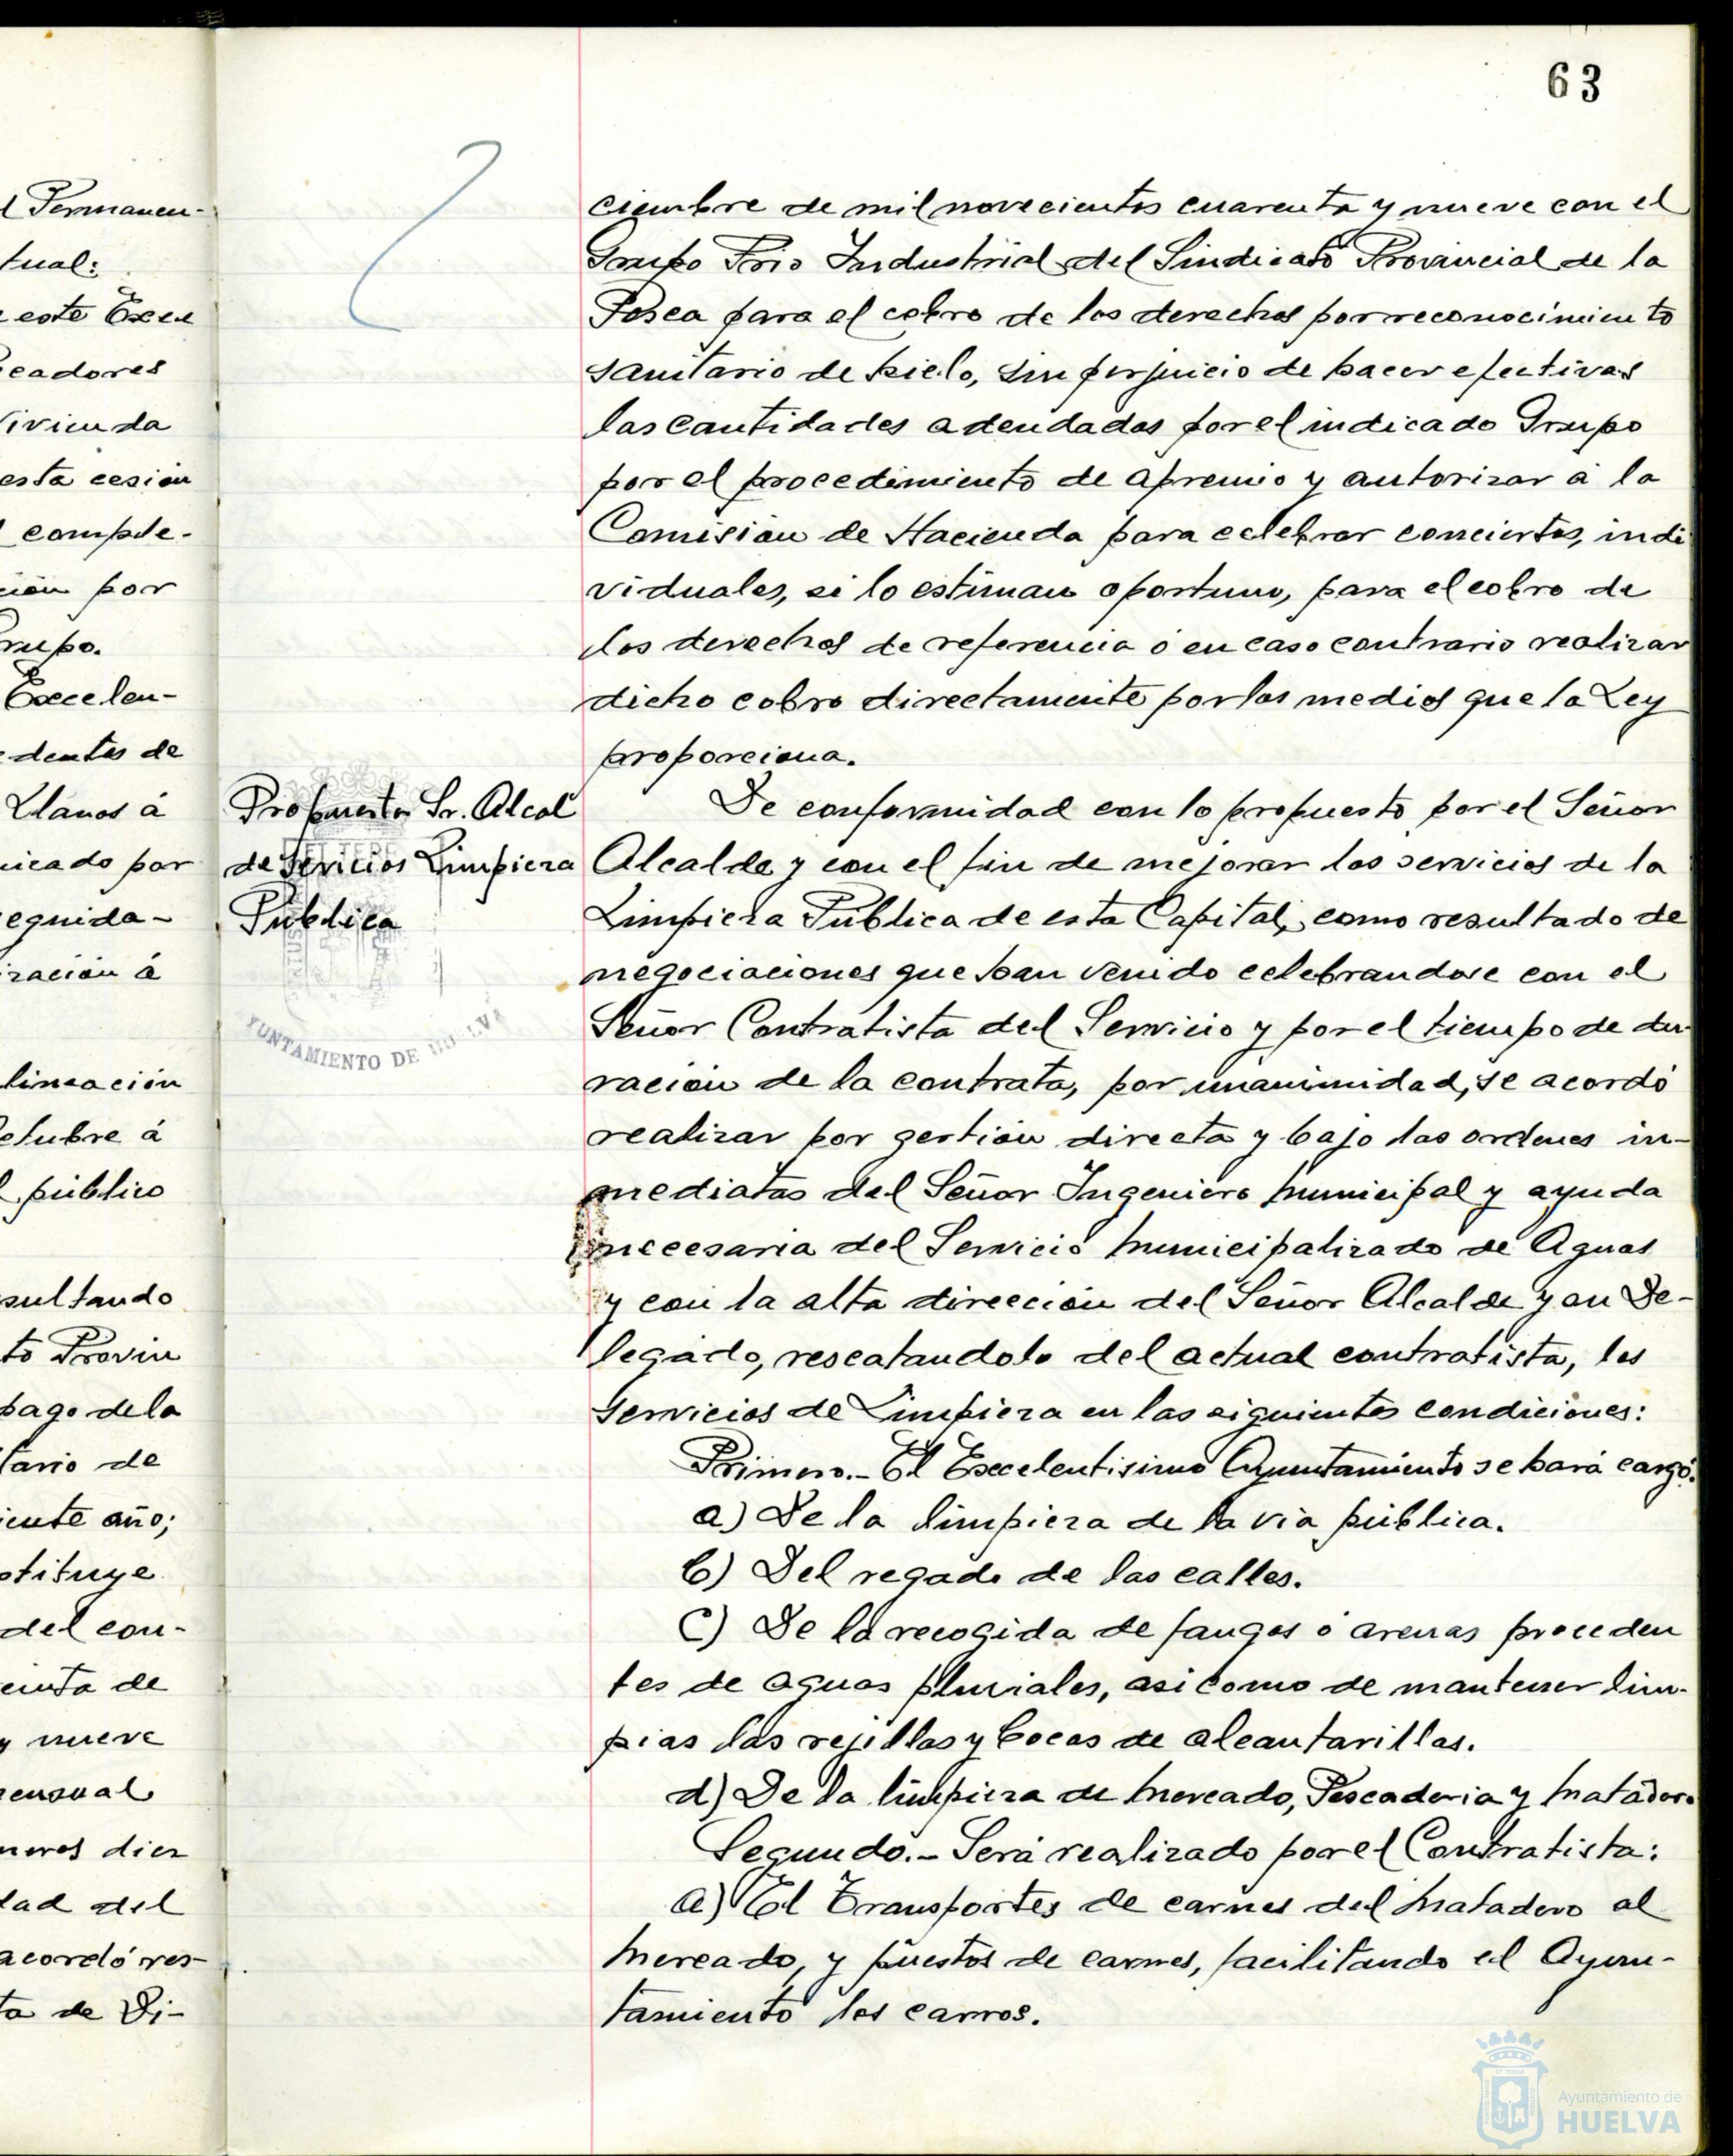 l Permanen-
tual:
e este Exce
eadores
Vivienda
esta cesión
comple-
ción por
rupo.
Excelen-
dentes de
Llanos á
nicado por
eguida-
ización á
lineación
ctubre á
l público
sultando
to Provin
pago de la
tario de
iente año;
stituye
del con-
enta de
y nueve
ensual
meros diez
dad del
acordó res-
ta de Di-
63
ciembre de mil novecientos cuarenta y nueve con el
Grupo Frio Industrial del Sindicato Provincial de la
Pesca para el cobro de los derechos por reconocimiento
sanitario de hielo, sin perjuicio de hacer efectivas
las cantidades adeudadas por el indicado Grupo
por el procedimiento de apremio y autorizar á la
Comisión de Hacienda para celebrar conciertos, indi
viduales, si lo estiman oportuno, para el cobro de
los derechos de referencia ó en caso contrario realizar
dicho cobro directamente por los medios que la Ley
proporciona.
Propuesta Sr. Alcal
de Servicios Limpieza
Publica
De conformidad con lo propuesto por el Señor
Alcalde y con el fin de mejorar los servicios de la
Limpieza Pública de esta Capital, como resultado de
negociaciones que han venido celebrandose con el
Señor Contratista del Servicio y por el tiempo de du-
ración de la contrata, por unanimidad, se acordó
realizar por gestión directa y bajo las ordenes in-
mediatas del Señor Ingeniero municipal y ayuda
necesaria del Servicio Municipalizado de Aguas
y con la alta dirección del Señor Alcalde y su De-
legado, rescatandolo del actual contratista, los
servicios de Limpieza en las siguientes condiciones:
Primero.- El Excelentisimo Ayuntamiento se hará cargo:
a) De la limpieza de la via pública.
b) Del regado de las calles.
C) De la recogida de fangos ó arenas proceden
tes de aguas pluviales, asi como de mantener lim-
pias las rejillas y bocas de alcantarillas.
d) De la limpieza de Mercado, Pescaderia y Matadero
Segundo.- Será realizado por el Contratista:
a) El Transportes de carnes del Matadero al
Mercado, y puestos de carnes, facilitando el Ayun-
tamiento los carros.
YUNTAMIENTO DE HUELVA
Ayuntamiento de
HUELVA